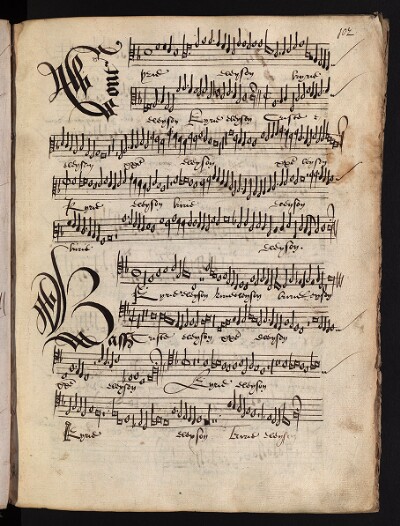 102
Cont
kyrie eleyson kyrie
eleyson Kyrie eleyson Criste
eleyson xpe eleyson xpe leyson
Kyrie eleyson kirie eleyson
kirie eleyson.
Kyrie eleyson kirie eleyson kirie eyson
Bass riste eleyson xpe eleyson
xpe eleyson Kyrie eleyson
Kyrie eleyson kirie eleyson